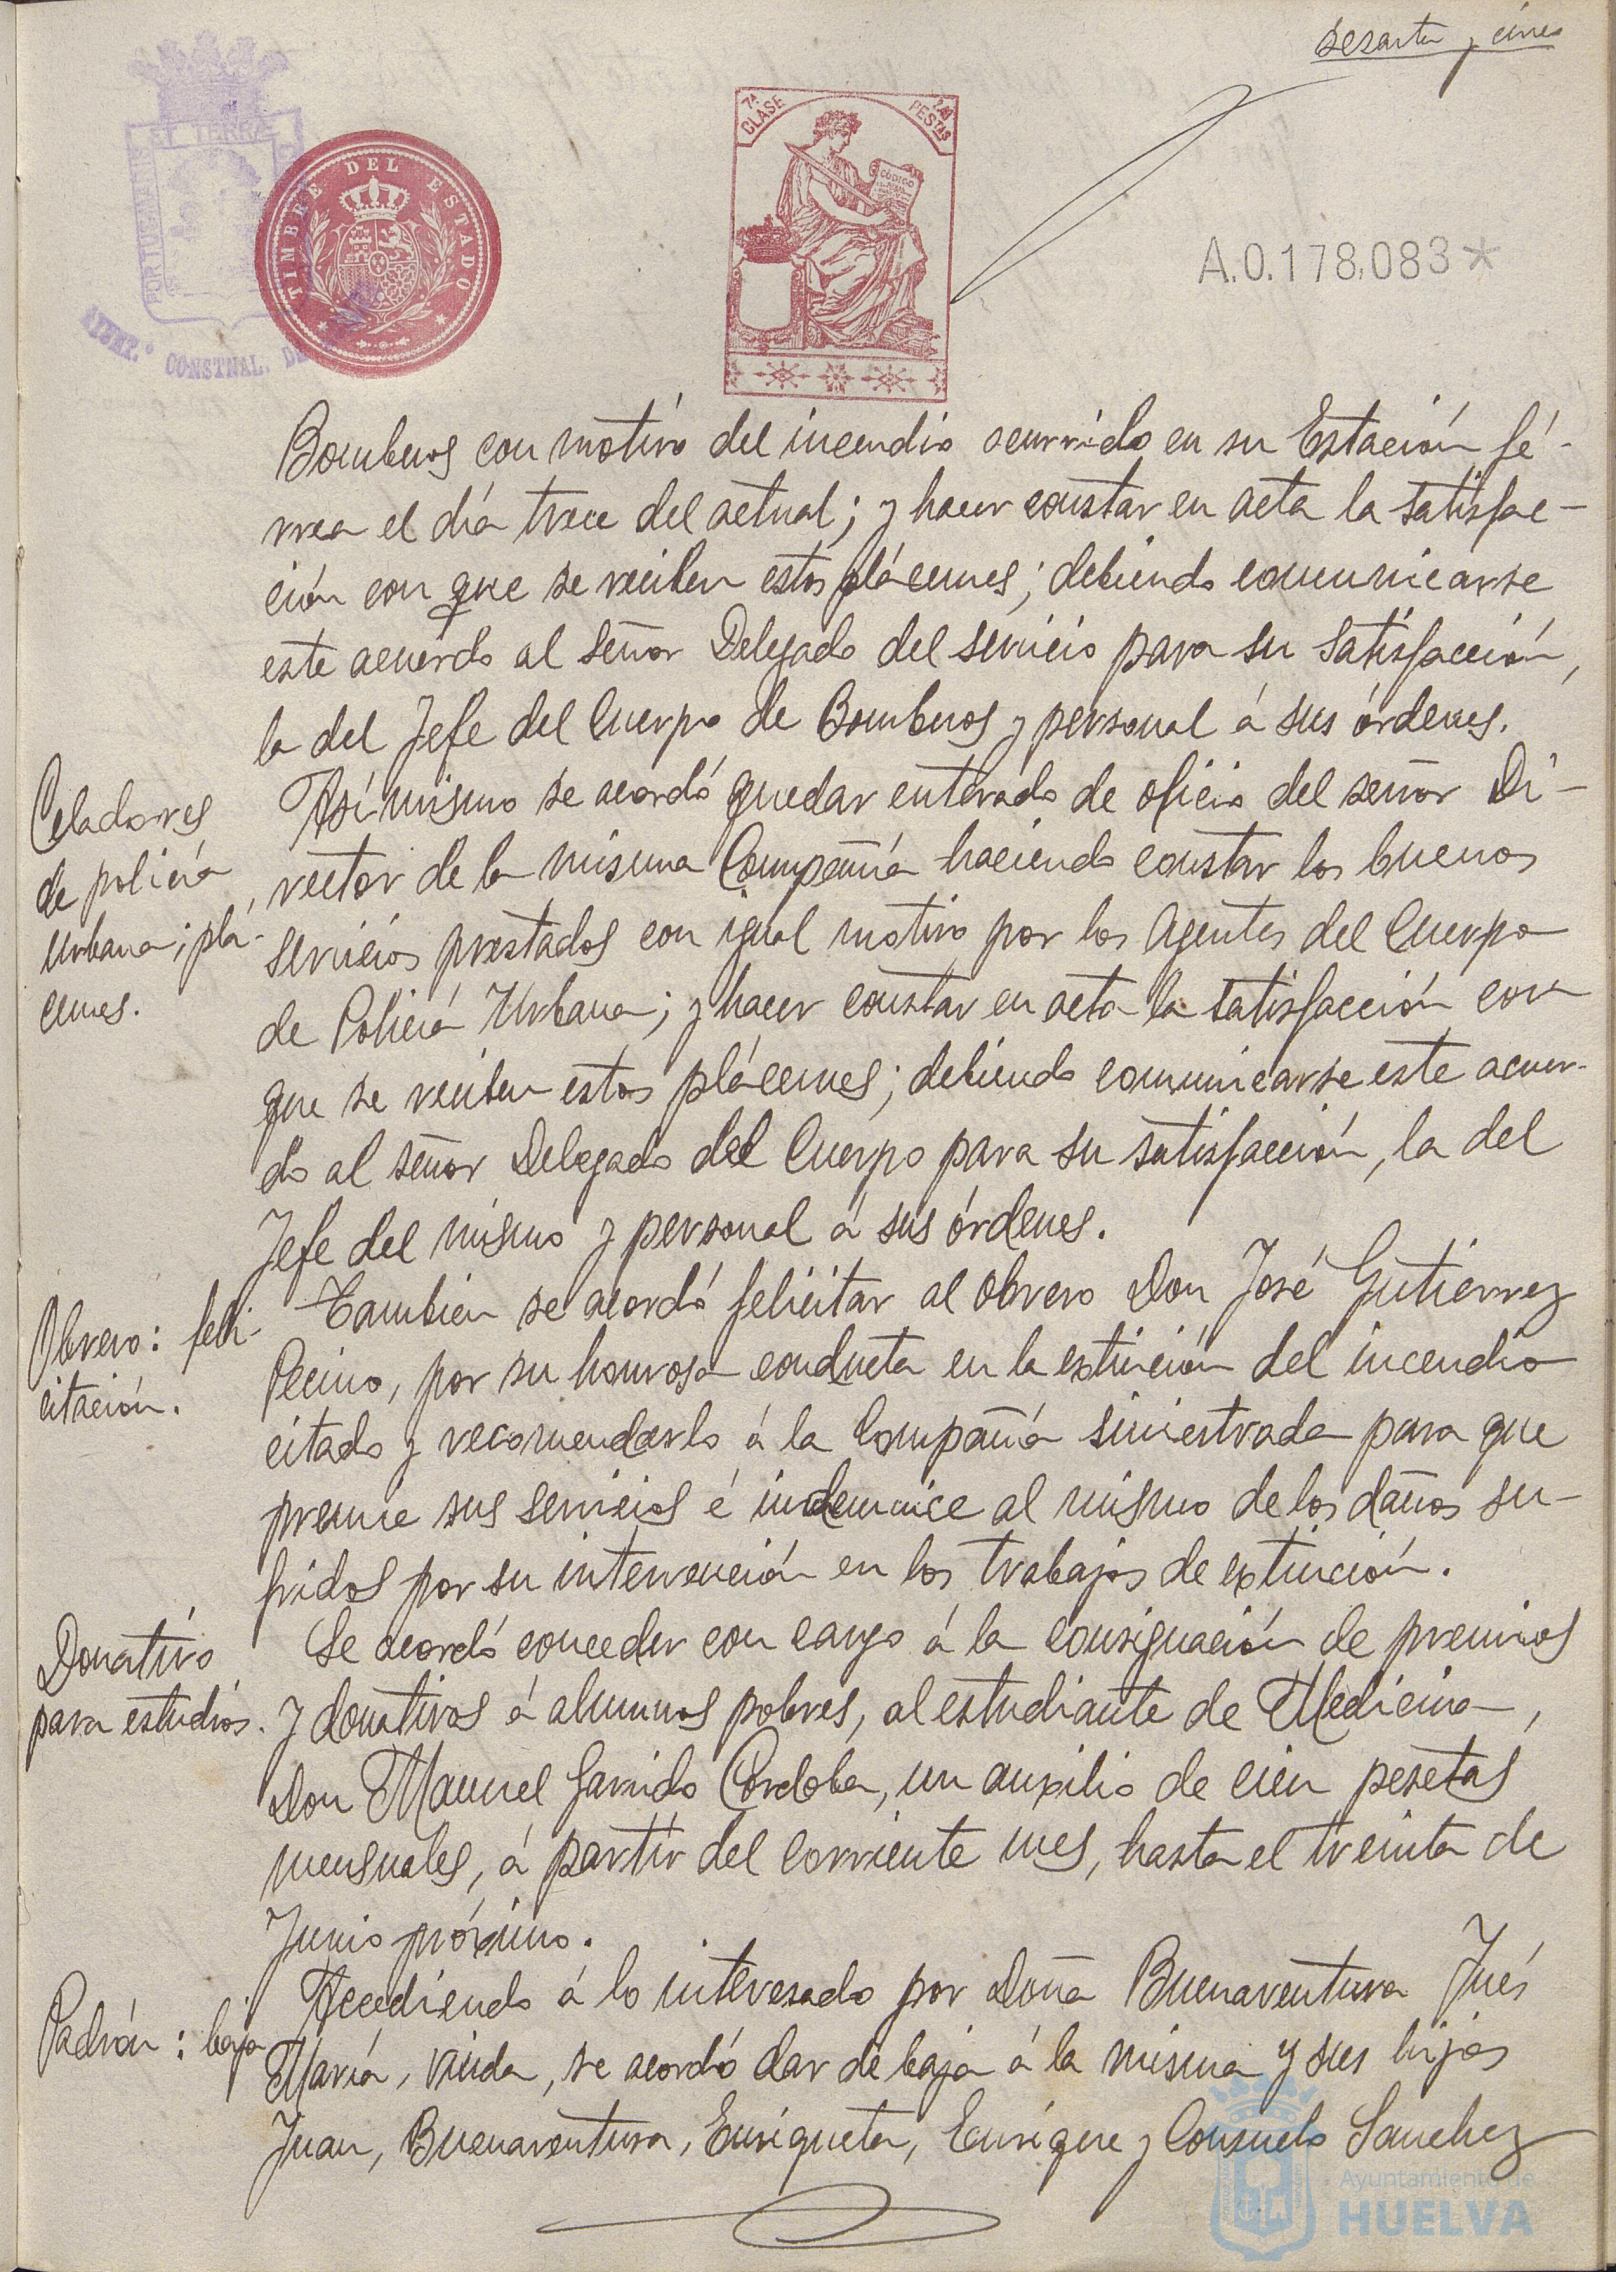 sesenta y cinco
7ª CLASE
PESTAS
CODIGO
TIMBRE DEL ESTADO
PORTUS MARIS ET TERRÆ
AYUNT.º CONSTNAL. DE
A.0.178.083*
Bomberos con motivo del incendio ocurrido en su Estación fé-
rrea el día trece del actual; y hacer constar en acta la satisfac-
ción con que se reciben estos plácemes; debiendo comunicarse
este acuerdo al señor Delegado del servicio para su satisfacción,
la del Jefe del Cuerpo de Bomberos y personal á sus órdenes.
Celadores
de policía
urbana; plá-
cemes.
Así mismo se acordó quedar enterado de oficio del señor Di-
rector de la misma Compañía haciendo constar los buenos
servicios prestados con igual motivo por los Agentes del Cuerpo
de Policía Urbana; y hacer constar en acta la satisfacción con
que se reciben estos plácemes; debiendo comunicarse este acuer-
do al señor Delegado del Cuerpo para su satisfacción, la del
Jefe del mismo y personal á sus órdenes.
Obrero: feli-
citación.
También se acordó felicitar al obrero Don José Gutiérrez
Pecino, por su honrosa conducta en la extinción del incendio
citado y recomendarlo á la Compañía siniestrada para que
premie sus servicios é indemnice al mismo de los daños su-
fridos por su intervención en los trabajos de extinción.
Donativo
para estudios.
Se acordó conceder con cargo á la consignación de premios
y donativos á alumnos pobres, al estudiante de Medicina,
Don Manuel Garrido Córdoba, un auxilio de cien pesetas
mensuales, á partir del corriente mes, hasta el treinta de
Junio próximo.
Padrón: baja
Accediendo á lo interesado por Doña Buenaventura Inés
María, viuda, se acordó dar de baja á la misma y sus hijos
Juan, Buenaventura, Enriqueta, Enrique y Consuelo Sanchez
Ayuntamiento de
HUELVA